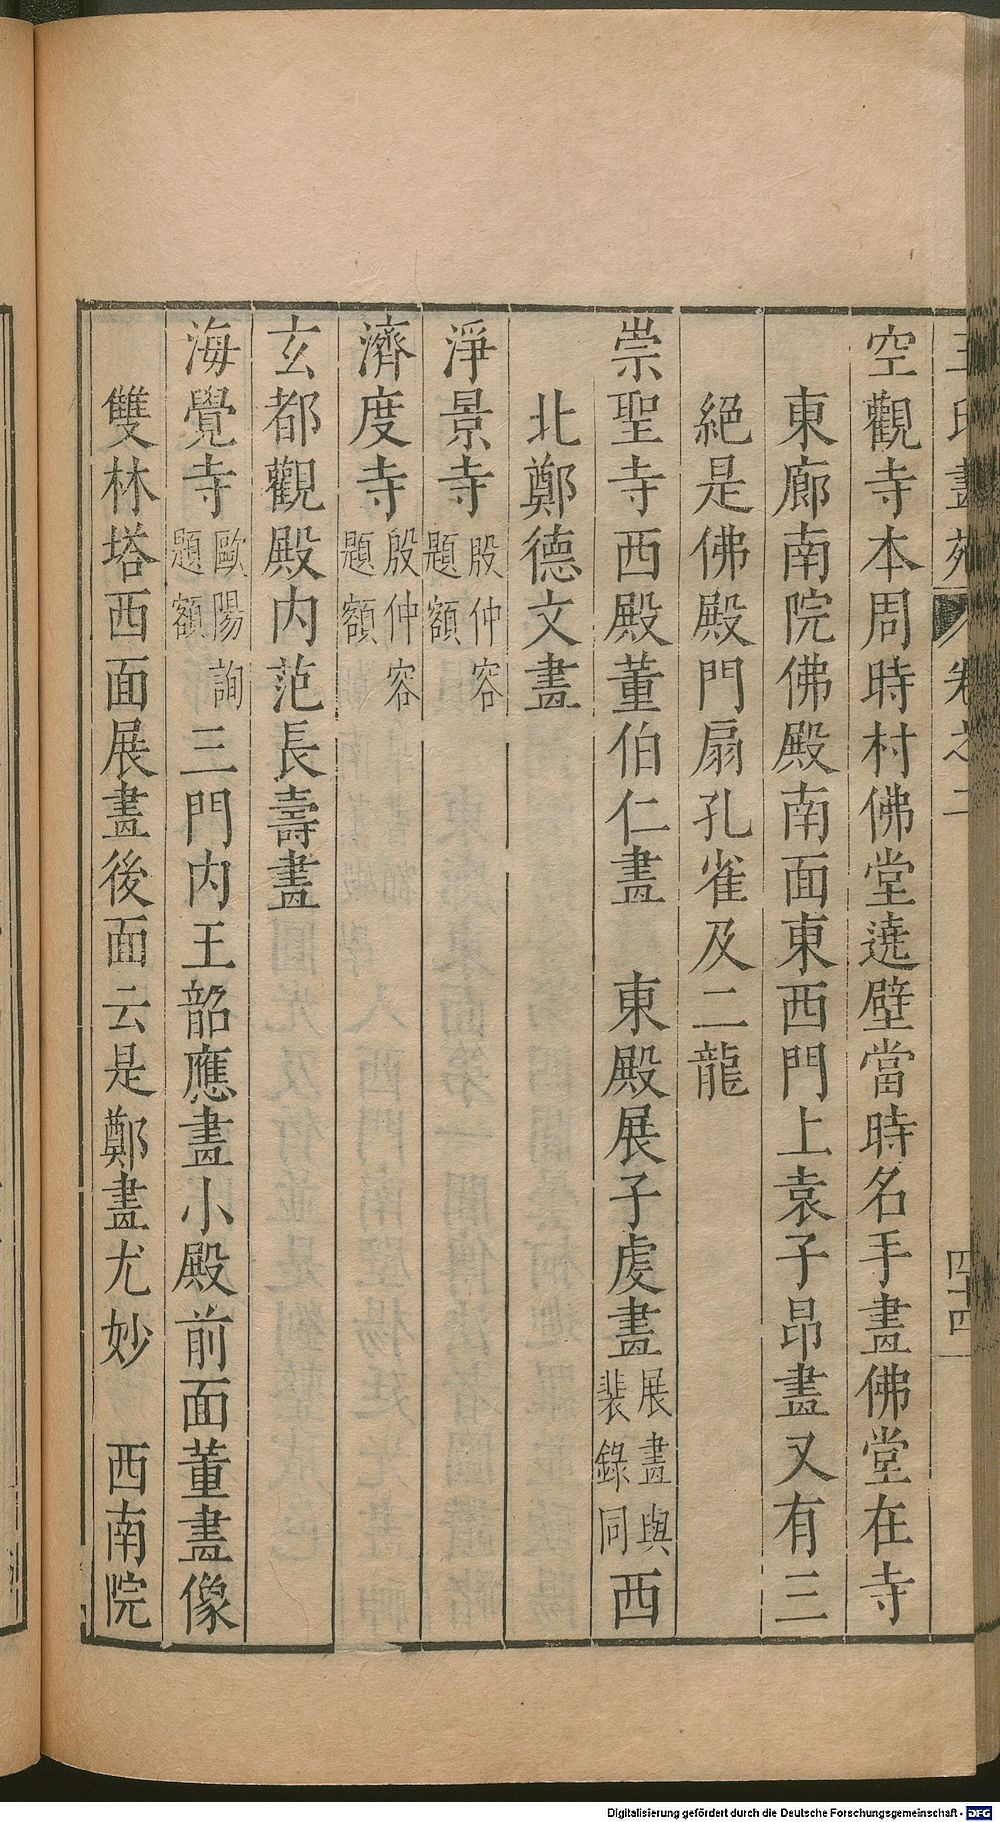 王氏畫苑 卷之二 四十四
空觀寺本周時村佛堂遶壁當時名手畫佛堂在寺
東廊南院佛殿南面東西門上袁子昂畫又有三
絕是佛殿門扇孔雀及二龍
崇聖寺西殿董伯仁畫 東殿展子虔畫展畫與裴錄同西
北鄭德文畫
淨景寺殷仲容題額
濟度寺殷仲容題額
玄都觀殿内范長壽畫
海覺寺歐陽詢題額三門内王韶應畫小殿前面董畫像
雙林塔西面展畫後面云是鄭畫尤妙 西南院
Digitalisierung gefördert durch die Deutsche Forschungsgemeinschaft - DFG